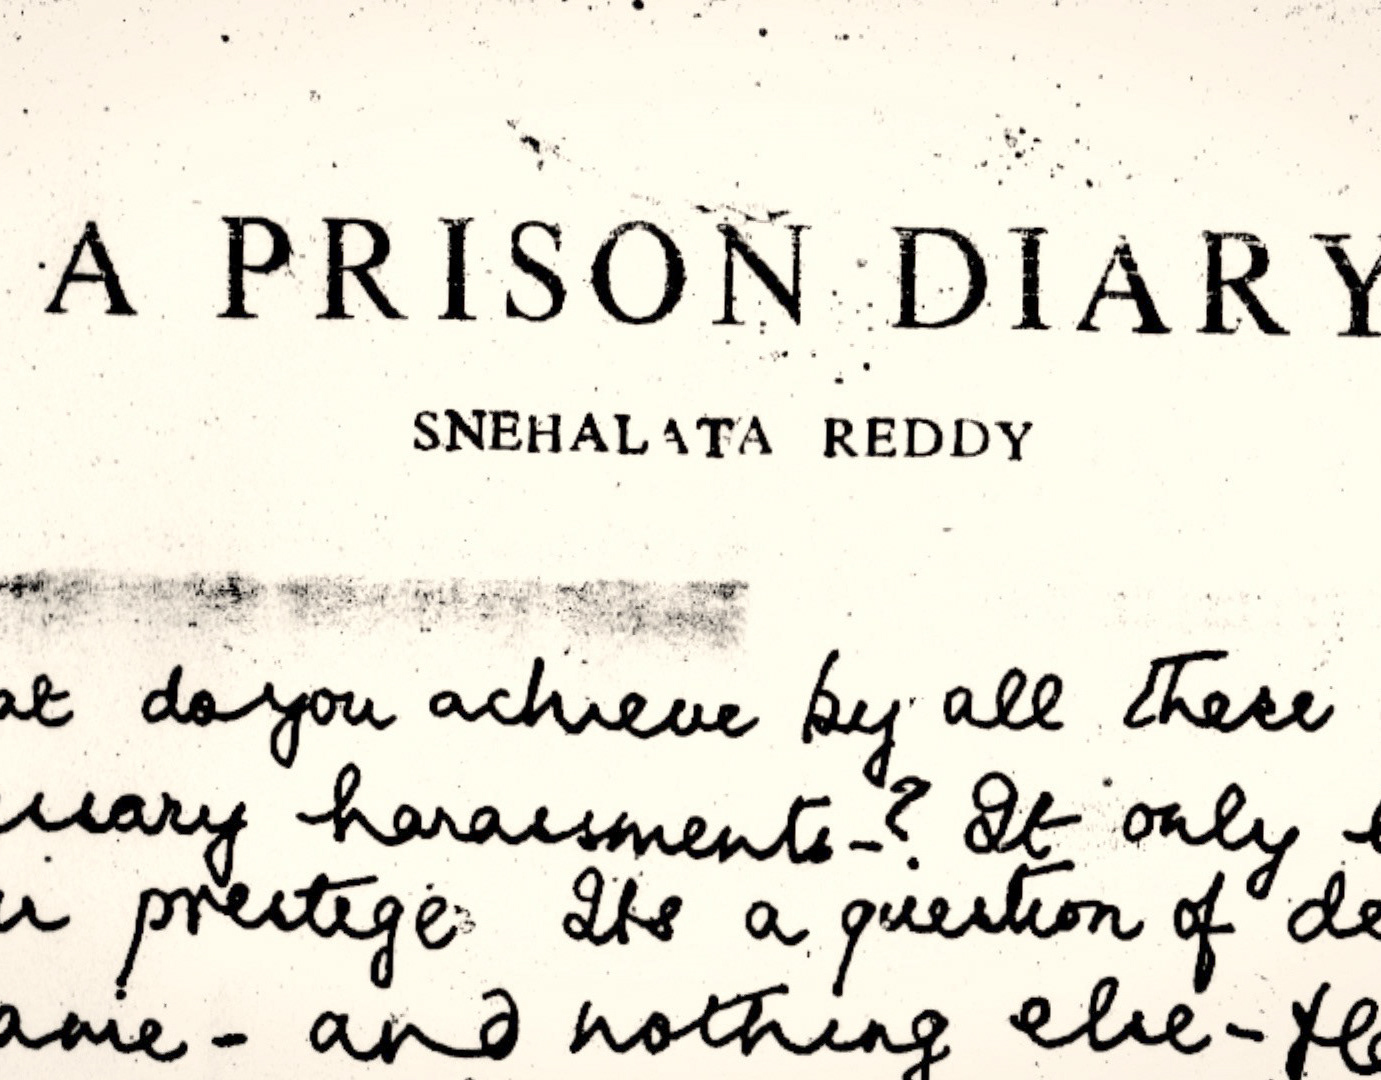 A PRISON DIARY
SNEHALATA REDDY
at do you achieve by all these
ssary harassments-? It only
prestige Its a question of de
ame - and nothing else -